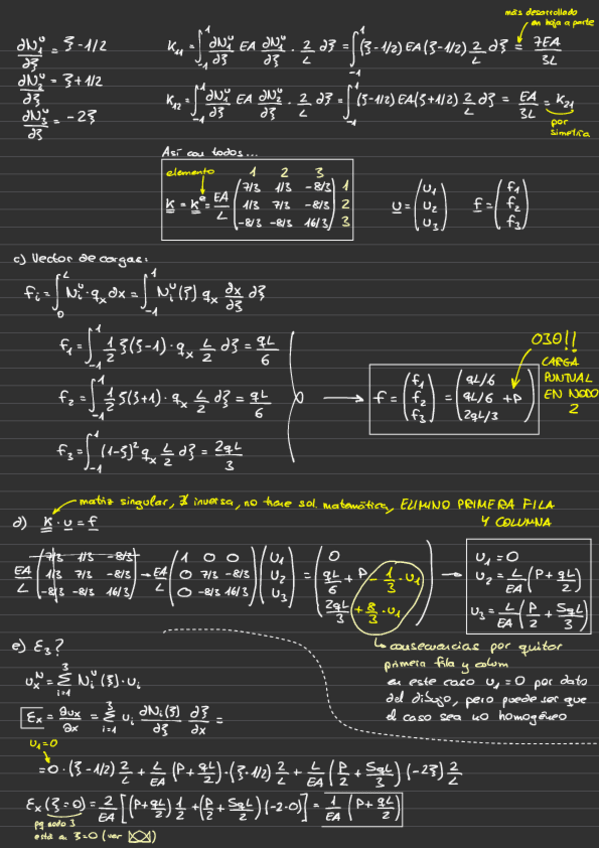 más desarrollado
en hoja a parte
∂N₁ᵘ/∂ξ = ξ - 1/2
K₁₁ = ∫₋₁¹ ∂N₁ᵘ/∂ξ EA ∂N₁ᵘ/∂ξ · 2/L ∂ξ = ∫₋₁¹ (ξ-1/2) EA (ξ-1/2) 2/L ∂ξ = 7EA/3L
∂N₂ᵘ/∂ξ = ξ + 1/2
K₁₂ = ∫₋₁¹ ∂N₁ᵘ/∂ξ EA ∂N₂ᵘ/∂ξ · 2/L ∂ξ = ∫₋₁¹ (ξ-1/2) EA (ξ+1/2) 2/L ∂ξ = EA/3L = K₂₁
∂N₃ᵘ/∂ξ = -2ξ
por
simetria
Así con todos...
elemento 1 2 3
K = Kᵉ = EA/L (7/3 1/3 -8/3) 1
(1/3 7/3 -8/3) 2
(-8/3 -8/3 16/3) 3
u = (u₁ u₂ u₃) f = (f₁ f₂ f₃)
c) Vector de cargas:
fᵢ = ∫₀ᴸ Nᵢᵘ · qₓ dx = ∫₋₁¹ Nᵢᵘ(ξ) qₓ ∂x/∂ξ ∂ξ
f₁ = ∫₋₁¹ 1/2 ξ(ξ-1) · qₓ L/2 ∂ξ = qL/6
f₂ = ∫₋₁¹ 1/2 ξ(ξ+1) · qₓ L/2 ∂ξ = qL/6
f₃ = ∫₋₁¹ (1-ξ)² qₓ L/2 ∂ξ = 2qL/3
f = (f₁ f₂ f₃) = (qL/6 qL/6 + P 2qL/3)
OJO!!
CARGA
PUNTUAL
EN NODO
2
matriz singular, ∄ inversa, no tiene sol. matemática, ELIMINO PRIMERA FILA
Y COLUMNA
d) K · u = f
EA/L (7/3 1/3 -8/3) (1/3 7/3 -8/3) (-8/3 -8/3 16/3) → EA/L (1 0 0) (0 7/3 -8/3) (0 -8/3 16/3) (u₁ u₂ u₃) = (0) (qL/6 + P - 1/3 · u₁) (2qL/3 + 8/3 · u₁)
u₁ = 0
u₂ = L/EA (P + qL/2)
u₃ = L/EA (P/2 + 5qL/3)
consecuencias por quitar
primera fila y colum
en este caso u₁ = 0 por dato
del dibujo, pero puede ser que
el caso sea no homogéneo
e) ε₃?
uₓᴺ = Σᵢ₌₁³ Nᵢᵘ(ξ) · uᵢ
εₓ = ∂uₓ/∂x = Σᵢ₌₁³ uᵢ ∂Nᵢ(ξ)/∂ξ ∂ξ/∂x =
u₁=0
= 0 · (ξ - 1/2) 2/L + L/EA (P + qL/2) · (ξ + 1/2) 2/L + L/EA (P/2 + 5qL/3) (-2ξ) 2/L
εₓ(ξ=0) = 2/EA [(P + qL/2) 1/2 + (P/2 + 5qL/3) (-2·0)] = 1/EA (P + qL/2)
pq nodo 3
está en ξ=0 (ver